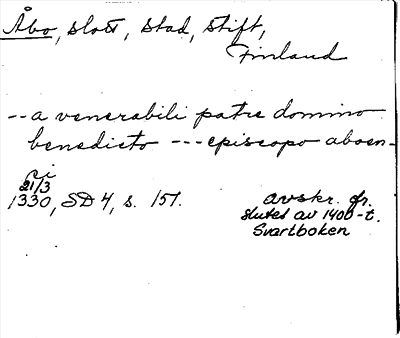 Åbo, slott, stad, stift,
Finland
-- a venerabili patre domino
benedicto --- episcopo aboen-
si
21/3
1330, SD 4, s. 151.
avskr. fr.
slutet av 1400-t.
Svartboken